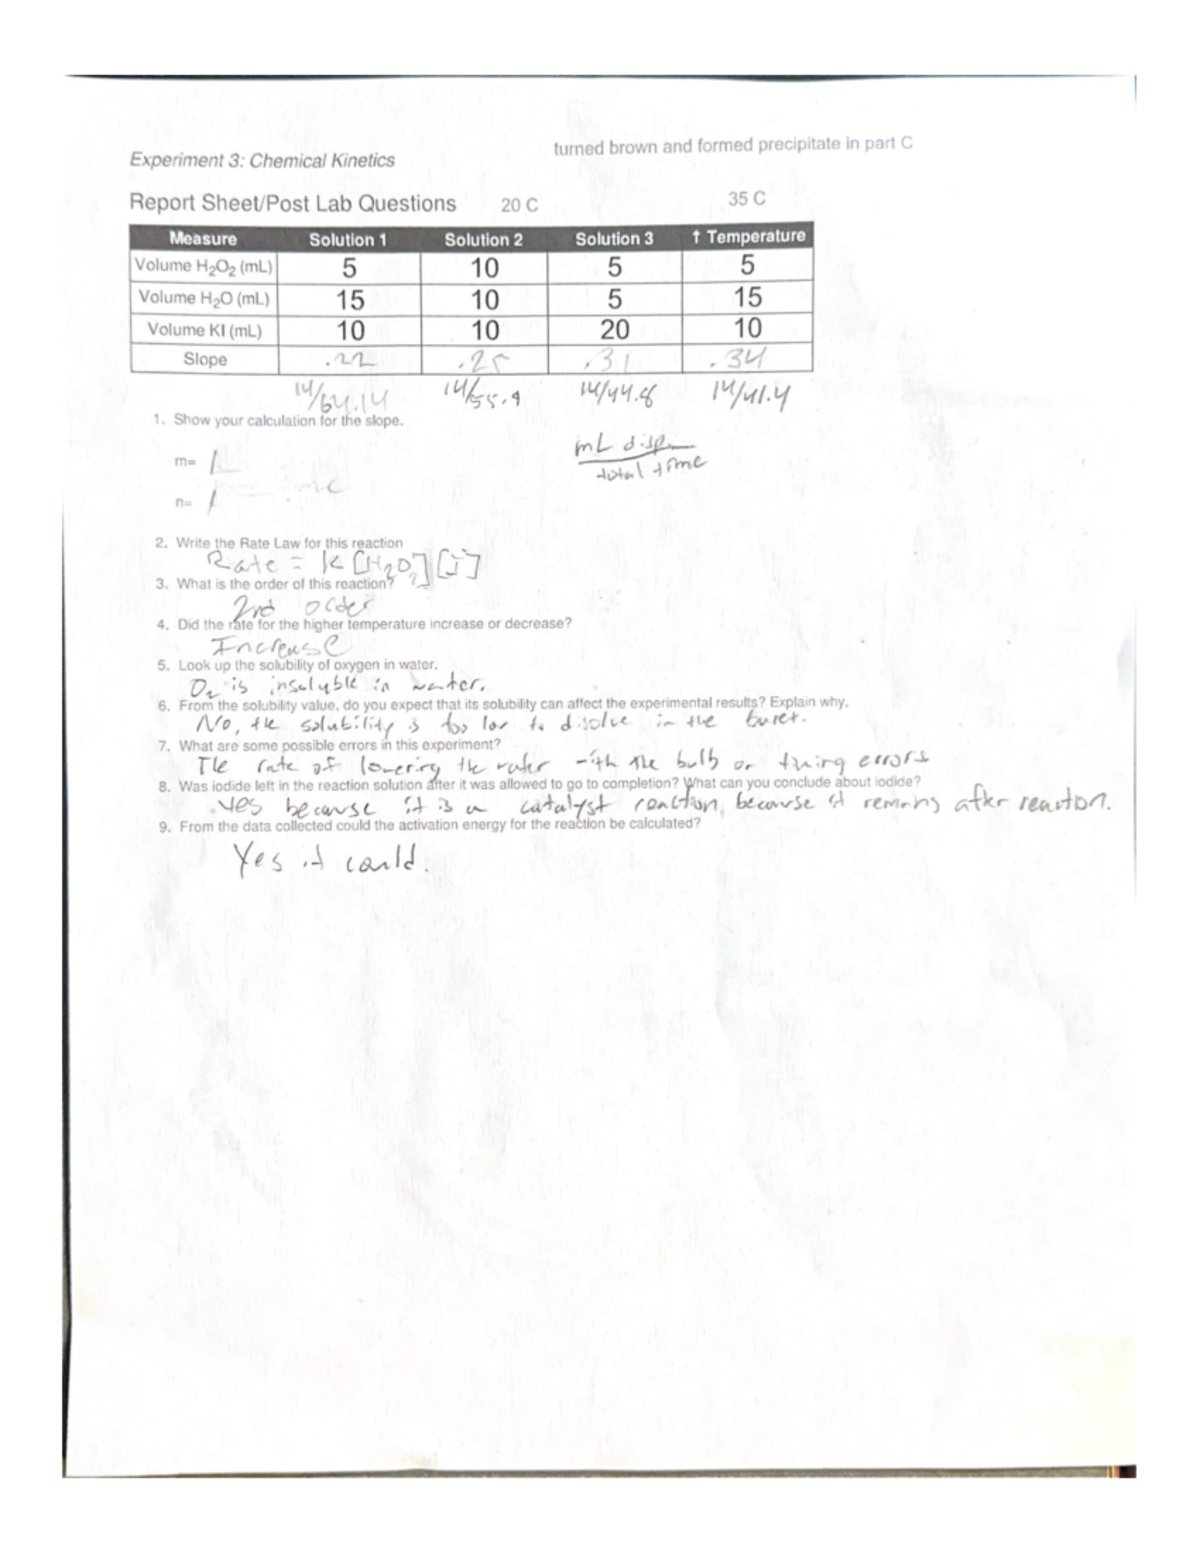 turned brown and formed precipitate in part C
Experiment 3: Chemical Kinetics
Report Sheet/Post Lab Questions 20 C 35 C
Measure Solution 1 Solution 2 Solution 3 ↑ Temperature
Volume H₂O₂ (mL) 5 10 5 5
Volume H₂O (mL) 15 10 5 15
Volume KI (mL) 10 10 20 10
Slope .22 .25 .31 .34
14/64.14 14/55.9 14/44.8 14/41.4
1. Show your calculation for the slope.
mL disp
total time
m= 1
n= 1
2. Write the Rate Law for this reaction
Rate = K [H₂O₂] [I⁻]
3. What is the order of this reaction?
2nd order
4. Did the rate for the higher temperature increase or decrease?
Increase
5. Look up the solubility of oxygen in water.
O₂ is insoluble in water.
6. From the solubility value, do you expect that its solubility can affect the experimental results? Explain why.
No, the solubility is too low to disolve in the buret.
7. What are some possible errors in this experiment?
The rate of lowering the water with the bulb or timing errors
8. Was iodide left in the reaction solution after it was allowed to go to completion? What can you conclude about iodide?
Yes because it is a catalyst reaction, because it remains after reaction.
9. From the data collected could the activation energy for the reaction be calculated?
Yes it could.